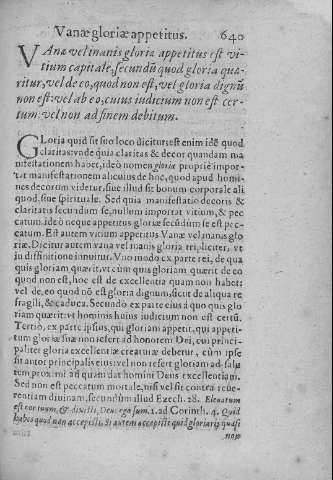 Vanæ gloriæ appetitus. 640
VAnæ vel inanis gloriæ appetitus est vi-
tium capitale, secundũ quod gloria quæ-
ritur, vel de eo, quod non est, vel gloria dignũ
non est: vel ab eo, cuius iudicium non est cer-
tum: vel non ad finem debitum.
GLoria quid sit suo loco dicitur: est enim idẽ quod
claritas: vnde quia claritas & decor quandam ma
nifestationem habet, ideò nomen gloriæ propriè impor-
tat manifestationem alicuius de hoc, quod apud homi-
nes decorum videtur, siue illud sit bonum corporale ali
quod, siue spirituale. Sed quia manifestatio decoris &
claritatis secundum se, nullum importat vitium, & pec
catum. ideò neque appetitus gloriæ secũdum se est pec-
catum. Est autem vitium appetitus Vanæ vel inanis glo
riæ. Dicitur autem vana vel inanis gloria tripliciter, vt
in diffinitione innuitur. Vno modo ex parte rei, de qua
quis gloriam quærit, vt cùm quis gloriam quærit de eo
quod non est, hoc est de excellentia quam non habet:
vel de eo quod nõ est gloria dignum, sicut de aliqua re
fragili, & caduca. Secundo ex parte eius à quo quis glo
riam quærit: vt hominis huius iudicium non est certũ.
Tertiò, ex parte ipsius, qui gloriam appetit, qui appeti-
tum gloriæ suæ non refert ad honorem Dei, cui princi-
paliter gloria excellentiæ creaturæ debetur, cùm ipse
sit autor principalis eius: vel non refert gloriam ad salu
tem proximi
Sed non est peccatum mortale, nisi vel sit contra reue-
rentiam diuinam, secundùm illud Ezech. 28. Eleuatum
est cor tuum, & dixisti, Deus ego sum. 1. ad Corinth. 4. Quid
habes quod non accepisti? Si autem accepisti quid gloriaris quasi
non